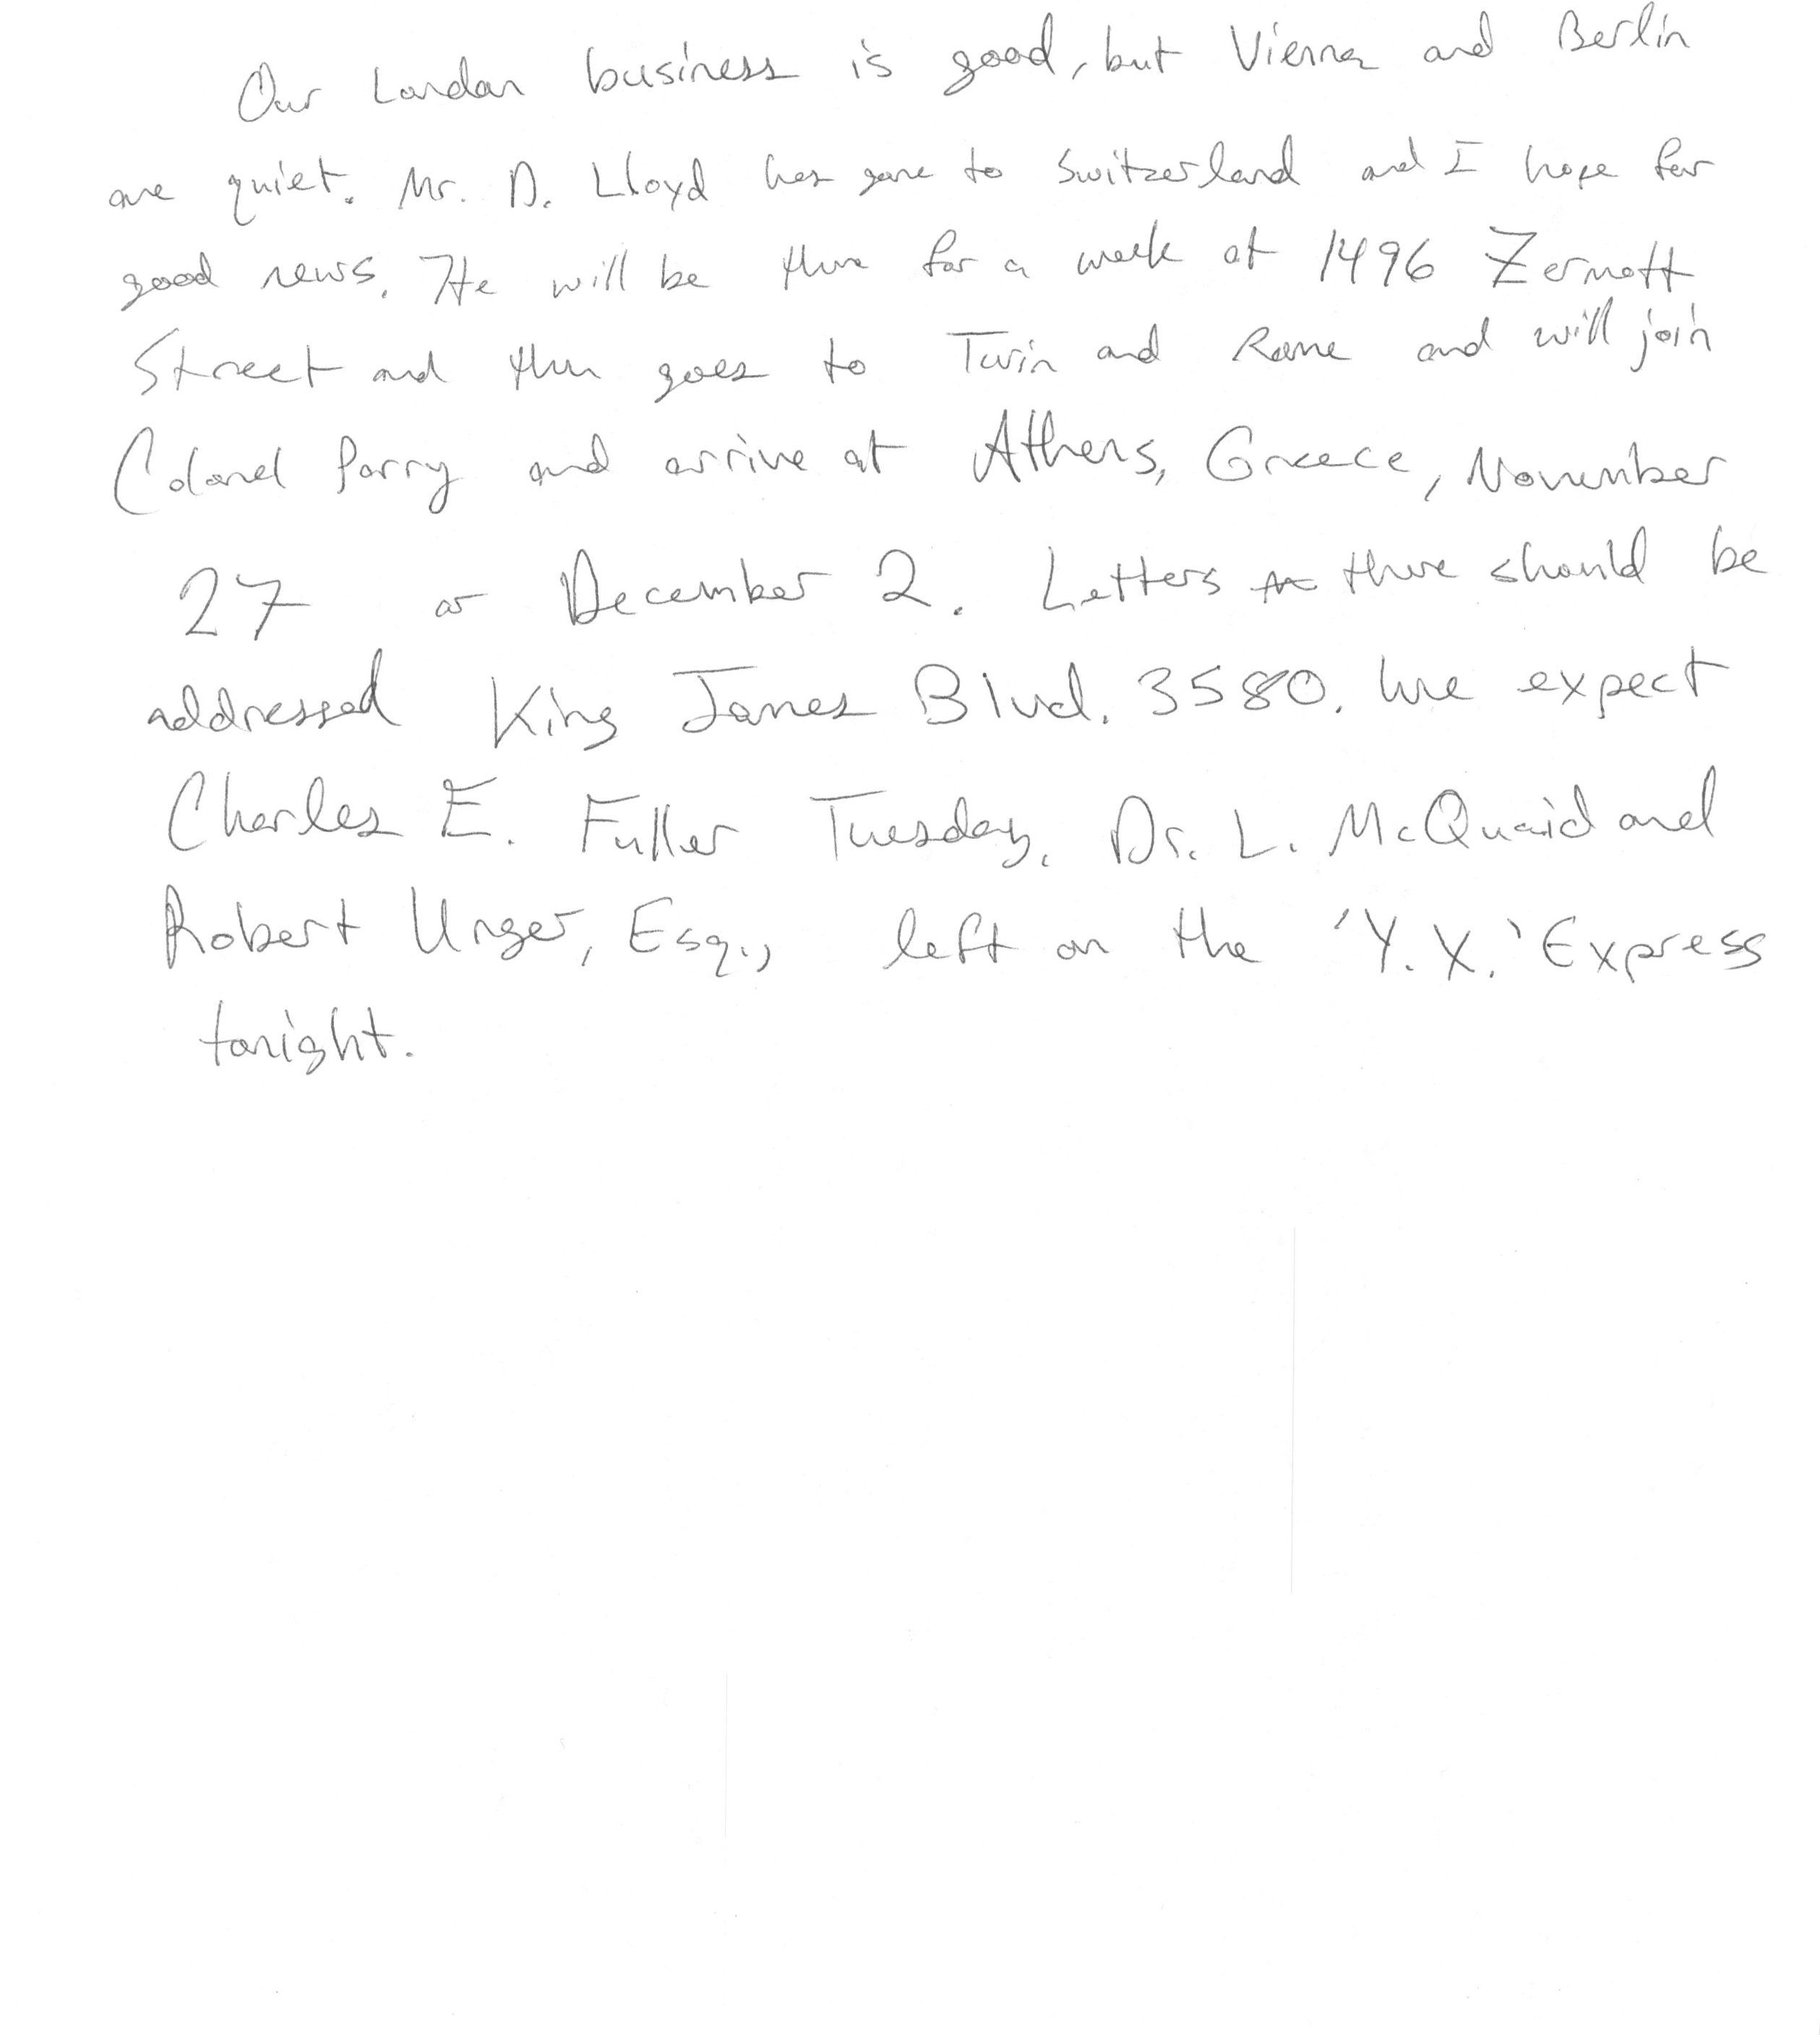 Our London business is good, but Vienna and Berlin
are quiet. Mr. D. Lloyd has gone to Switzerland and I hope for
good news. He will be there for a week at 1496 Zermott
Street and then goes to Turin and Rome and will join
Colonel Parry and arrive at Athens, Greece, November
27 or December 2. Letters there should be
addressed King James Blvd. 3580. We expect
Charles E. Fuller Tuesday. Dr. L. McQuaid and
Robert Unger, Esq., left on the 'Y.X.' Express
tonight.